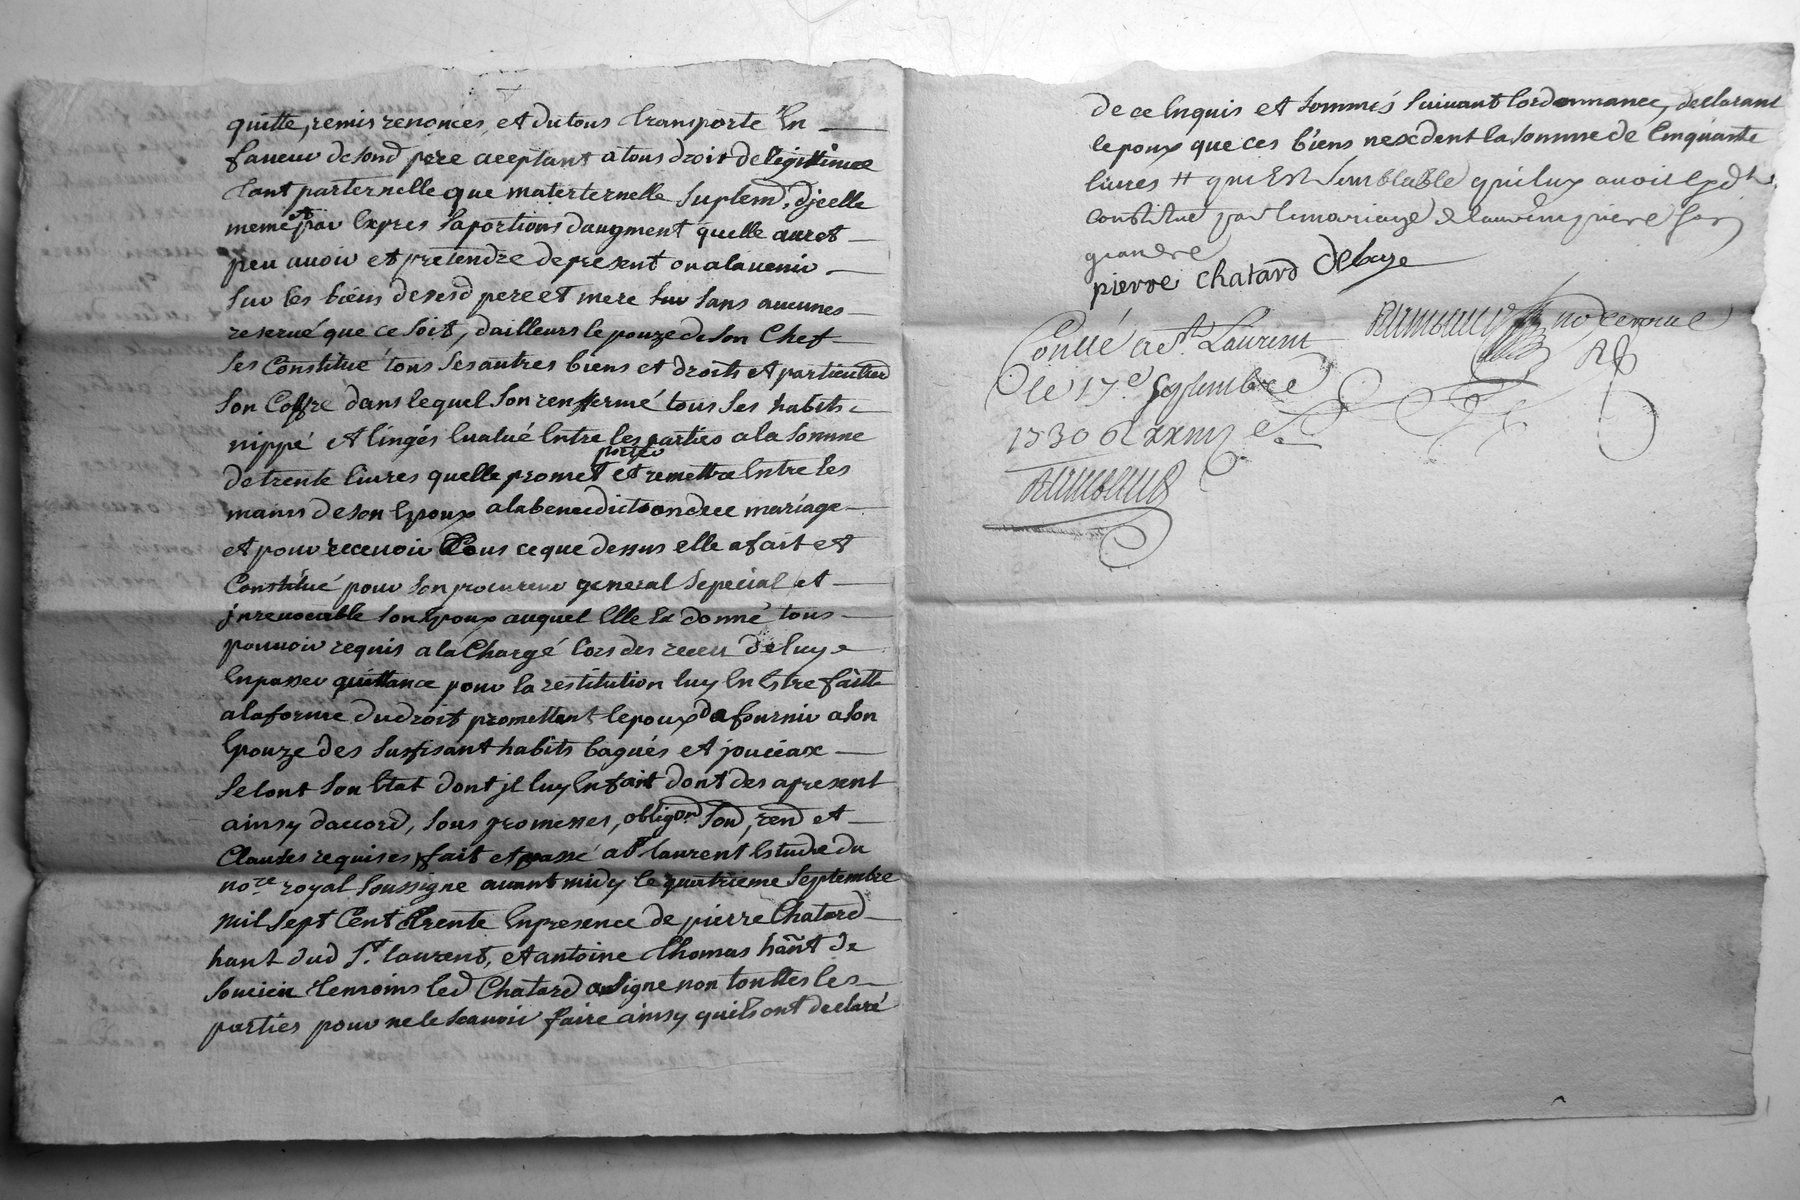 quitte, remis renoncés, et du tous transporte En
faveur de sond pere aceptant a tous droit de legittime
tant parternelle que materternelle suplemd. djcelle
meme et par Expres saportions daugment quelle auret
peu avoir et pretendre de present ou alavenir
sur les biens de sesd pere et mere sur sans aucunes
reservé que ce soit, dailleurs lepouze de son Chef
ses Constitué tous ses autres biens et droits et particullier
son Coffre dans lequel son renffermé tous ses habits
nippé et lingés Evalué Entre les parties a la somme
de trente livres quelle promet porter et remettre Entre les
mains de son Epoux alabenedictondece mariage
et pour recevoir tous ce que dessus elle a fait et
Constitué pour son procureur general sepecial et
jrrevocable son Epoux auquel Elle a donné tous
pouvoir requis a la Chargé lors des receu deluy
En passer quittance pour la restitution luy En Estre faitte
a la forme du droit promettant lepoux de fournir a son
Epouze des susfisant habits bagués et joueaux
selont son Etat dont jl luy En fait dont des apresent
ainsy daccord, sous promesses, obligon. sond, rend et
Clauses requises fait et passé a st laurent Estude du
nore royal soussigne avant midy le quatrieme septembre
mil sept Cent trente En presence de pierre Chatard
hant dud st. laurent, et antoine thomas hant de
soucieu temoins led Chatard a signe non touttes les
parties pour ne le scavoir faire ainsy quils ont declaré
de ce Enquis et sommés suivant lordonnance, declarant
lepoux que ces biens nexcedent la somme de Cinquante
livres # qui Est semblable quil luy avoit
constitué par le mariage
pierre chatard
Conllé a st. Laurent
le 17e. septembre
1730